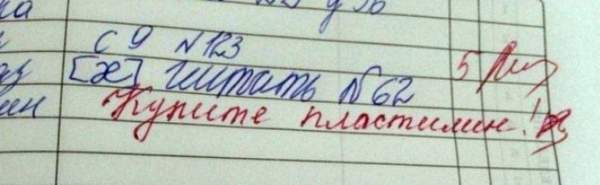 с 9 N 123
[æ] читать N 62 5
Купите пластилин!